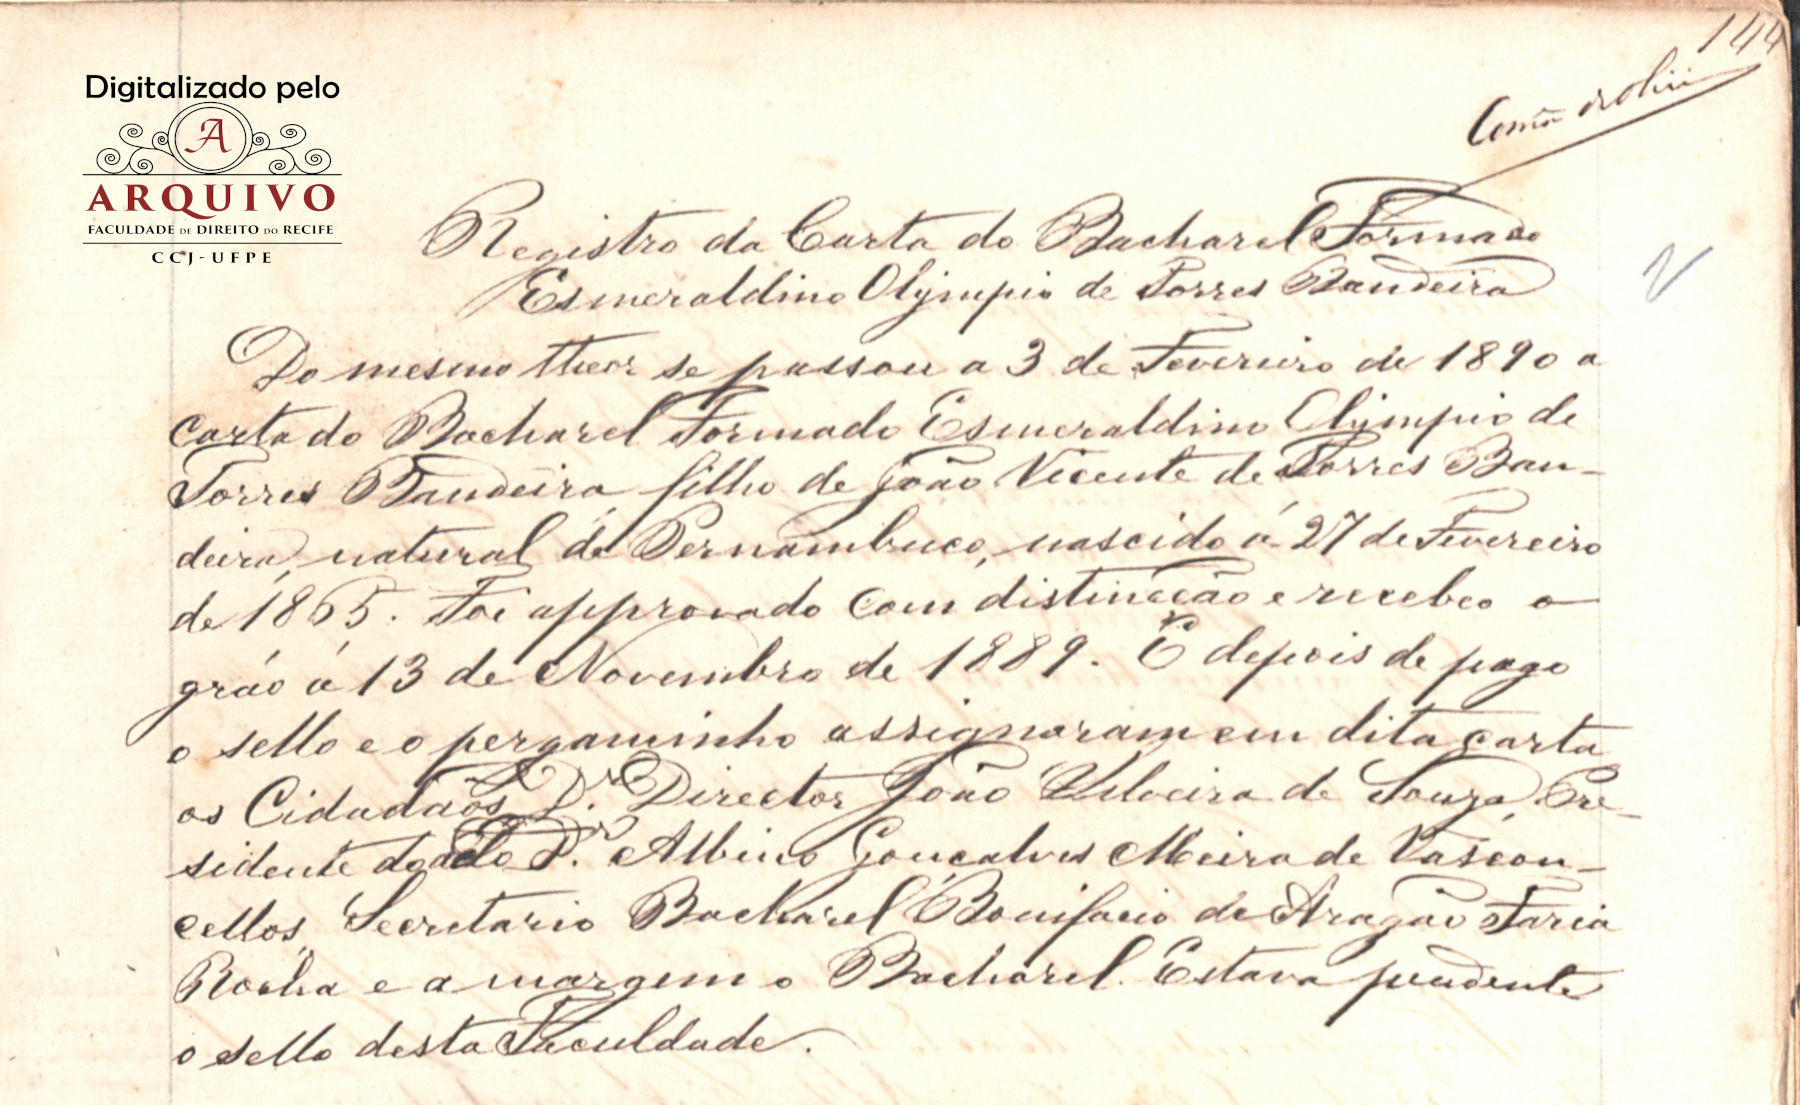 144
Digitalizado pelo
A
ARQUIVO
FACULDADE DE DIREITO DO RECIFE
CCJ-UFPE
Registro da Carta do Bacharel Formado
Esmeraldino Olympio de Torres Bandeira
Do mesmo theor se passou a 3 de Fevereiro de 1890 a
carta do Bacharel Formado Esmeraldino Olympio de
Torres Bandeira filho de João Vicente de Torres Ban-
deira, natural de Pernambuco, nascido á 27 de Fevereiro
de 1865. Foi approvado com distincção e recebeo o
gráo á 13 de Novembro de 1889. E depois de pago
o sello e o pergaminho assignaram em dita carta
os Cidadãos Dr. Director João Silveira de Souza, Pre-
sidente do acto Dr. Albino Gonçalves Meira de Vascon-
cellos, Secretario Bacharel Bonifacio de Aragão Faria
Rocha e a margem o Bacharel. Estava pendente
o sello desta Faculdade.